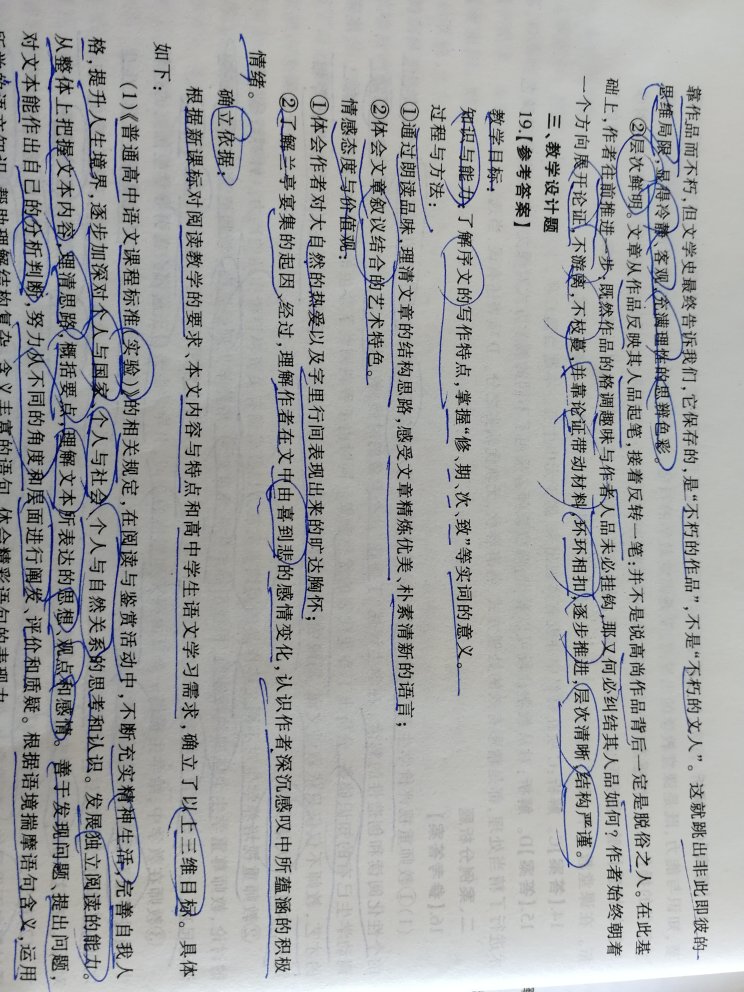 靠作品而不朽,但文学史最终告诉我们,它保存的,是“不朽的作品”,不是“不朽的文人”。这就跳出非此即彼的
思维局限,显得冷静、客观,充满理性的思辨色彩。
②层次鲜明。文章从作品反映其人品起笔,接着反转一笔:并不是说高尚作品背后一定是脱俗之人。在此基
础上,作者往前推进一步,既然作品的格调趣味与作者人品未必挂钩,那又何必纠结其人品如何?作者始终朝着
一个方向展开论证,不游离,不枝蔓,并靠论证带动材料,环环相扣,逐步推进,层次清晰,结构严谨。
三、教学设计题
19.【参考答案】
教学目标:
知识与能力:了解序文的写作特点,掌握“修、期、次、致”等实词的意义。
过程与方法:
①通过朗读品味,理清文章的结构思路,感受文章精炼优美、朴素清新的语言;
②体会文章叙议结合的艺术特色。
情感态度与价值观:
①体会作者对大自然的热爱以及字里行间表现出来的旷达胸怀;
②了解兰亭宴集的起因、经过,理解作者在文中由喜到悲的感情变化,认识作者深沉感叹中所蕴涵的积极
情绪。
确立依据:
根据新课标对阅读教学的要求、本文内容与特点和高中学生语文学习需求,确立了以上三维目标。具体
如下:
(1)《普通高中语文课程标准(实验)》的相关规定,在阅读与鉴赏活动中,不断充实精神生活,完善自我人
格,提升人生境界,逐步加深对个人与国家、个人与社会、个人与自然关系的思考和认识。发展独立阅读的能力。
从整体上把握文本内容,理清思路,概括要点,理解文本所表达的思想、观点和感情。善于发现问题、提出问题,
对文本能作出自己的分析判断,努力从不同的角度和层面进行阐发、评价和质疑。根据语境揣摩语句含义,运用
所学的语文知识,帮助理解结构复杂、含义丰富的语句,体会精彩语句的表现力